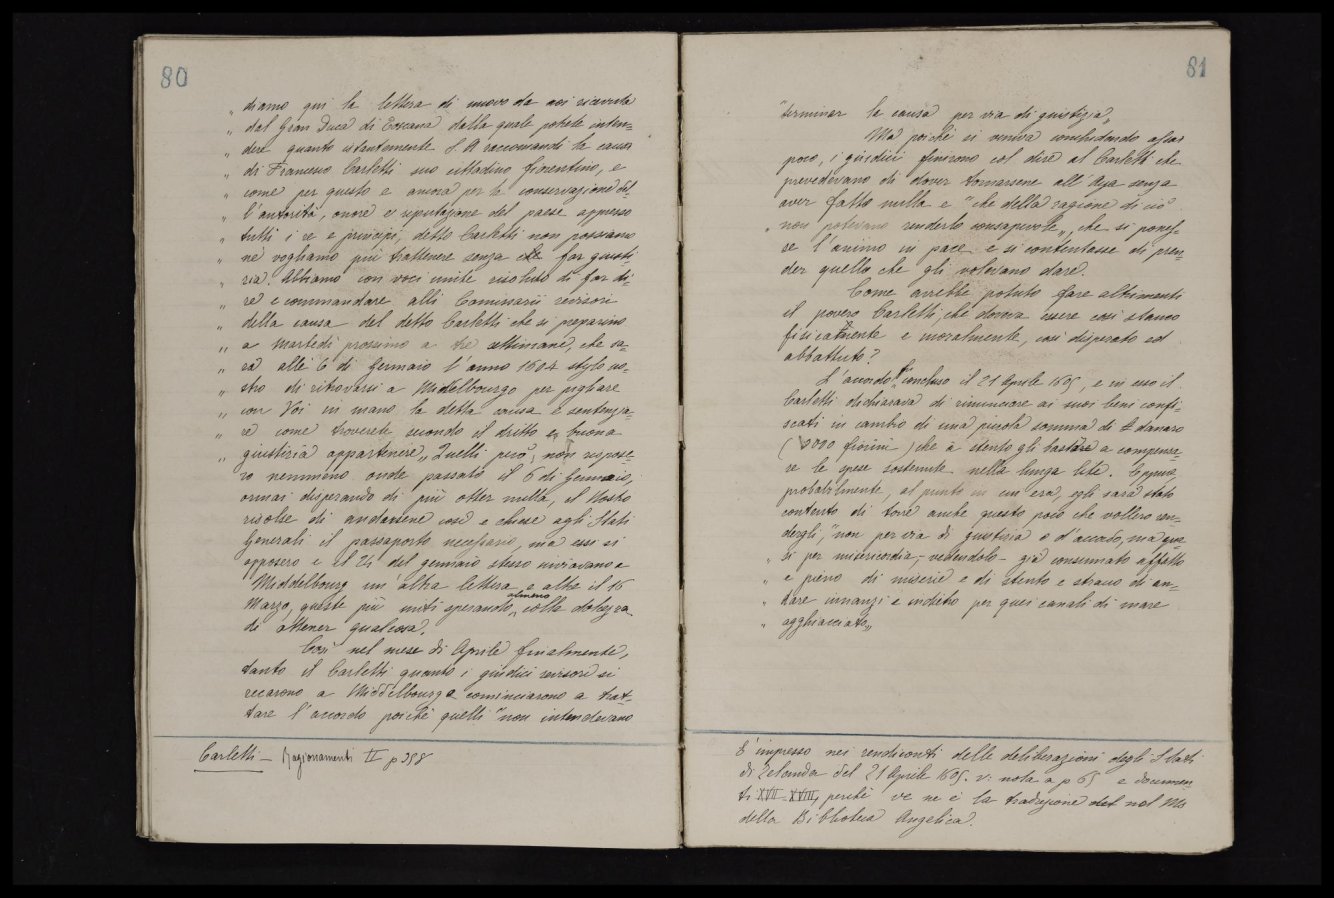 80
„ diamo qui la lettera di nuovo da noi ricevuta
„ dal Gran Duca di Toscana dalla quale potrete inten=
„ dere quanto istantemente S. A raccomandi la causa
„ di Francesco Carletti suo cittadino fiorentino, e
„ come per questo e ancora per la conservazione del=
„ l'autorità, onore e reputazione del paese appresso
„ tutti i re e principi, detto Carletti non possiamo
„ nè vogliamo più trattenere senza che far giusti=
„ zia. Abbiamo con voci unite risoluto di far di=
„ re e commandare alli Commissarii revisori
„ della causa del detto Carletti che si preparino
„ a martedi prossimo a tre settimane, che sa=
„ rà alli 6 di Gennaio l'anno 1604 stylo no=
„ stro di ritrovarsi a Middelbourgo per pigliare
„ con Voi in mano la detta causa e sentenzia=
„ re come troverete secondo il dritto e buona
„ giustizia appartenere„ Quelli però, non rispose=
ro nemmeno onde passato il 6 di Gennaio,
ormai disperando di più otter nulla, il Nostro
risolse di andarsene così e chiese agli Stati
Generali il passaporto necessario, ma essi si
opposero e il 24 del gennaio stesso inviavano a
Middelbourg un'altra lettera e altra il 16
Marzo, queste più miti sperando almeno colla dolcezza
di ottener qualcosa.
Così nel mese di Aprile finalmente,
tanto il Carletti quanto i giudici revisori si
recarono a Middelbourg e cominciarono a trat=
tare l'accordo poichè quelli "non intendevano
Carletti – Ragionamenti II p 358
81
"terminar la causa per via di giustizia„
Ma poichè si veniva conchiudendo assai
poco, i giudici finirono col dire al Carletti che
prevedevano di dover tornarsene all'Aya senza
aver fatto nulla e "che della ragione di ciò
„ non potevano renderlo consapevole„, che si pones=
se l'animo in pace e si contentasse di pren=
der quello che gli volevano dare.
Come avrebbe potuto fare altrimenti
il povero Carletti, che doveva essere così stanco
fisicamente e moralmente, così disperato ed
abbattuto?
L'accordo fu concluso il 21 Aprile 1605, e in esso il
Carletti dichiarava di rinunciare ai suoi beni confi=
scati in cambio di una piccola somma di danaro
( 000 fiorini ) che a stento gli bastava a compensa=
re le spese sostenute nella lunga lite. Eppure
probabilmente, al punto in cui era, egli sarà stato
contento di torre anche questo poco che vollero ren=
dergli, "non per via di giustizia o d'accordo, ma qua=
„ si per misericordia, vedendolo già consumato affatto
„ e pieno di miserie e di stento e stracco di an=
„ dare innanzi e indietro per quei canali di mare
„ agghiacciato„
E' impresso nei rendiconti delle deliberazioni degli Stati
di Zelanda del 21 Aprile 1605. v: nota a p 65 e documen=
ti XVII-XVIII, perchè ve ne è la traduzione nel Ms
della Biblioteca Angelica.